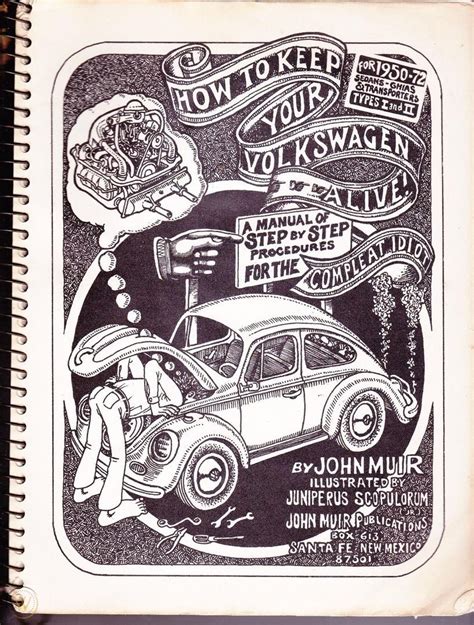 HOW TO KEEP
YOUR
VOLKSWAGEN
ALIVE!
FOR 1950-72
SEDANS-GHIAS
& TRANSPORTERS
TYPES I and II
A MANUAL OF
STEP BY STEP
PROCEDURES
FOR THE
COMPLEAT IDIOT
BY JOHN MUIR
ILLUSTRATED BY
JUNIPERUS SCOPULORUM
(JR.)
JOHN MUIR PUBLICATIONS
BOX 613
SANTA FE-NEW MEXICO
87501